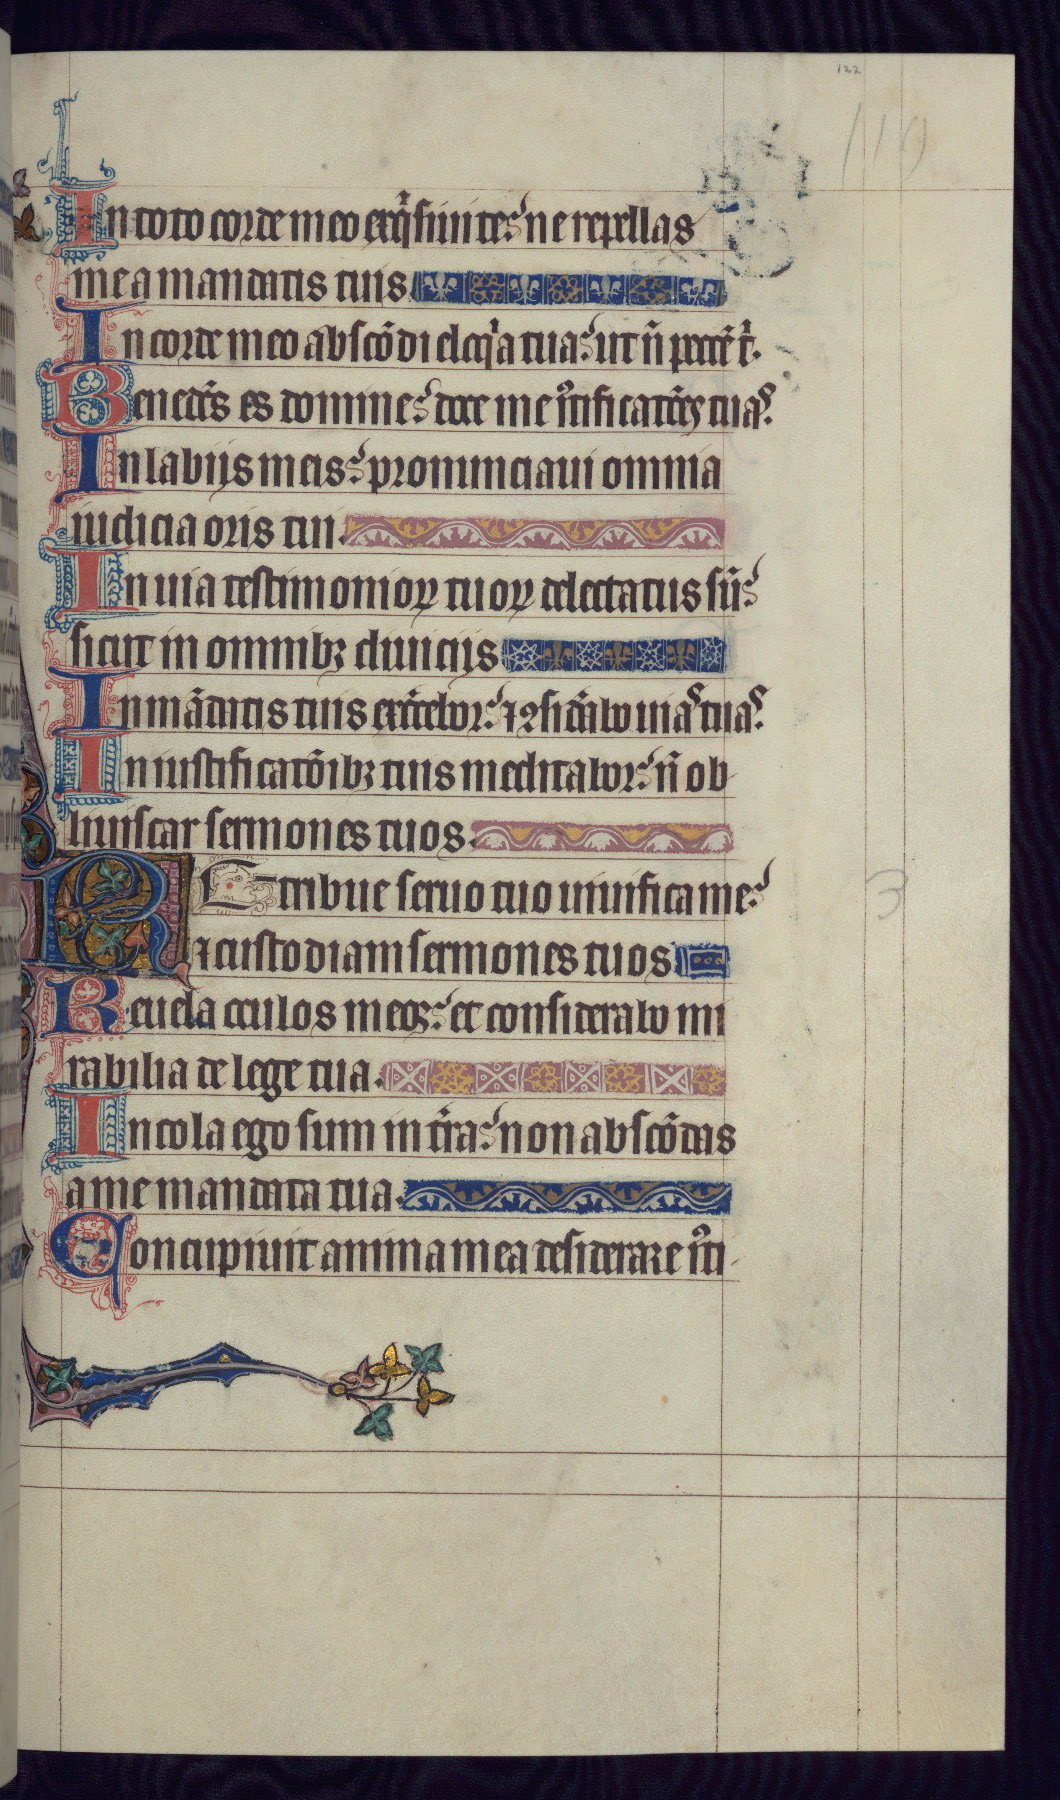 122
119
In toto corde meo exq̇siui te: ne repellas
me a mandatis tuis.
In corde meo abscōdi eloq̇a tua: ut n̄ peccē t̄.
Benedc̄s es domine: doce me iustificatōes tuas.
In labijs meis: pronunciaui omnia
iudicia oris tui.
In uia testimonioꝝ tuoꝝ delectatus sū:
sicut in omnibꝫ diuicijs
In mādatis tuis exc̄ebor: ⁊ ꝯsiderabo uias tuas.
In iustificatōibꝫ tuis meditabor: n̄ ob
liuiscar sermones tuos.
Retribue seruo tuo uiuifica me:
⁊ custodiam sermones tuos
Reuela oculos meos: et considerabo mi
rabilia de lege tua.
Incola ego sum in t̄ra: non abscōdas
a me mandata tua.
Concupiuit anima mea desiderare iusti
3